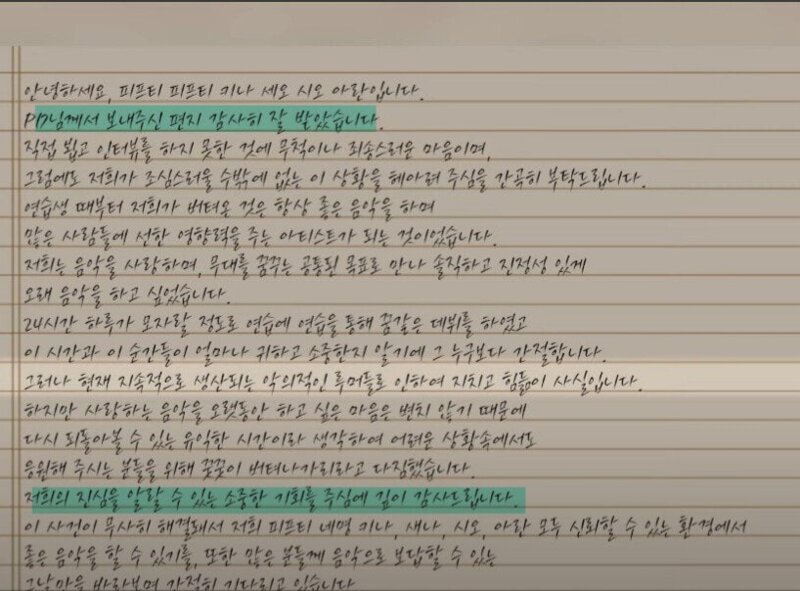 안녕하세요, 피프티 피프티 키나 세오 시오 아란입니다.
PD님께서 보내주신 편지 감사히 잘 받았습니다.
직접 뵙고 인터뷰를 하지 못한 것에 무척이나 죄송스러운 마음이며,
그럼에도 저희가 조심스러울 수밖에 없는 이 상황을 헤아려 주심을 간곡히 부탁드립니다.
연습생 때부터 저희가 버텨온 것은 항상 좋은 음악을 하며
많은 사람들에 선한 영향력을 주는 아티스트가 되는 것이었습니다.
저희는 음악을 사랑하며, 무대를 꿈꾸는 공통된 목표로 만나 솔직하고 진정성 있게
오래 음악을 하고 싶었습니다.
24시간 하루가 모자랄 정도로 연습에 연습을 통해 꿈같은 데뷔를 하였고
이 시간과 이 순간들이 얼마나 귀하고 소중한지 알기에 그 누구보다 간절합니다.
그러나 현재 지속적으로 생산되는 악의적인 루머들로 인하여 지치고 힘듦이 사실입니다.
하지만 사랑하는 음악을 오랫동안 하고 싶은 마음은 변치 않기 때문에
다시 되돌아볼 수 있는 유익한 시간이라 생각하여 어려운 상황속에서도
응원해 주시는 분들을 위해 꿋꿋이 버텨나가리라고 다짐했습니다.
저희의 진심을 알릴 수 있는 소중한 기회를 주심에 깊이 감사드립니다.
이 사건이 무사히 해결돼서 저희 피프티 네명 키나, 새나, 시오, 아란 모두 신뢰할 수 있는 환경에서
좋은 음악을 할 수 있기를, 또한 많은 분들께 음악으로 보답할 수 있는
그날만을 바라보며 간절히 기다리고 있습니다